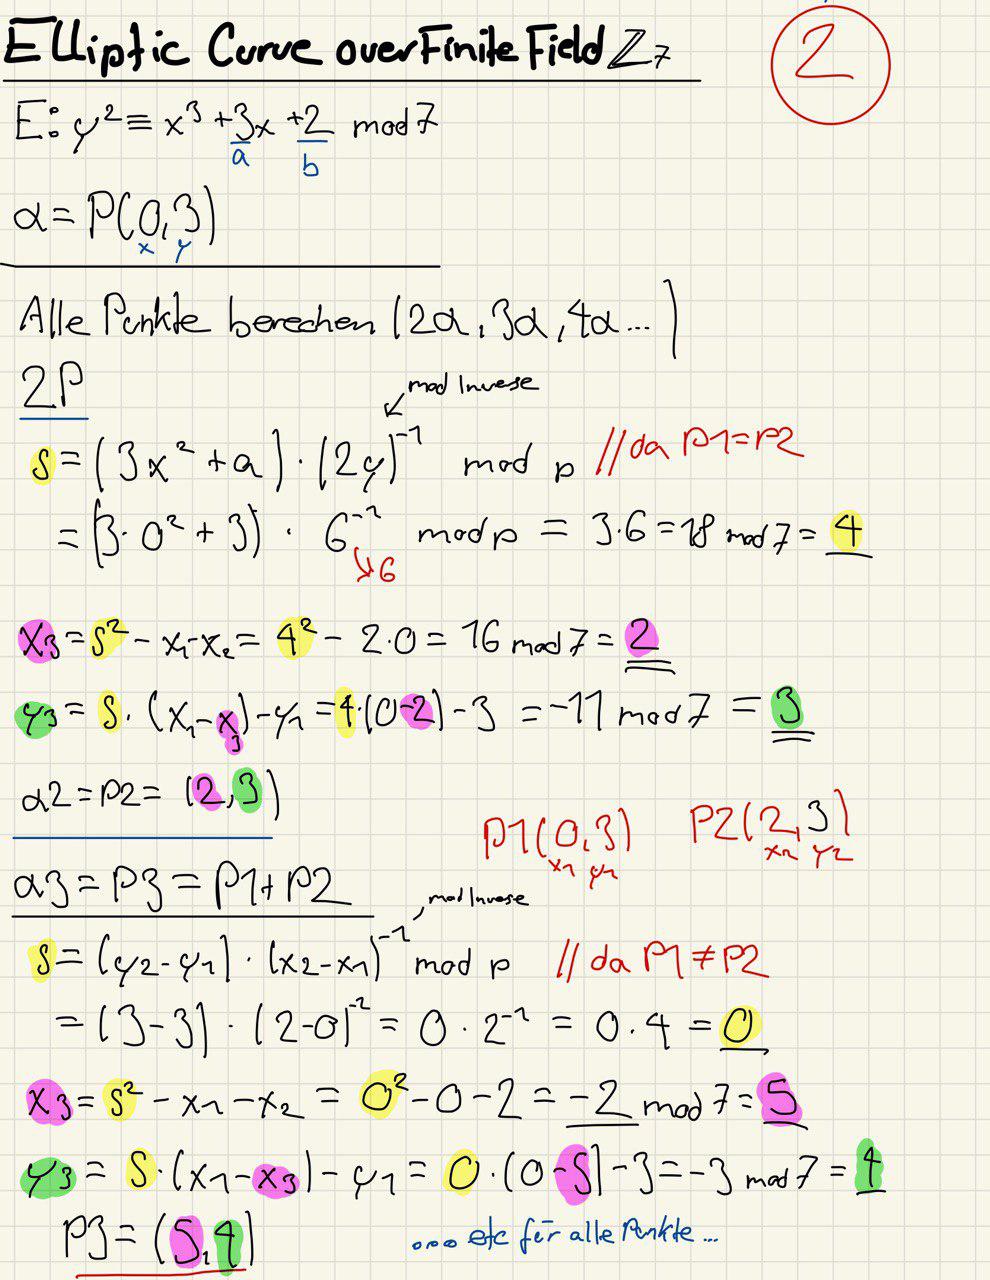 Elliptic Curve over Finite Field ℤ₇
2
E: y² ≡ x³ + 3x + 2 mod 7
a b
α = P(0,3)
x y
Alle Punkte berechen (2α, 3α, 4α ...)
2P
mod Inverse
s = (3x² + a) · (2y)⁻¹ mod p // da P1=P2
= (3·0² + 3) · 6⁻¹ mod p = 3·6 = 18 mod 7 = 4
↘6
x₃ = s² - x₁ - x₂ = 4² - 2·0 = 16 mod 7 = 2
y₃ = s · (x₁ - x₃) - y₁ = 4·(0-2) - 3 = -11 mod 7 = 3
α2 = P2 = (2,3)
P1(0,3) P2(2,3)
x₁ y₁ x₂ y₂
α3 = P3 = P1 + P2
mod Inverse
s = (y₂ - y₁) · (x₂ - x₁)⁻¹ mod p // da P1 ≠ P2
= (3-3) · (2-0)⁻¹ = 0 · 2⁻¹ = 0 · 4 = 0
x₃ = s² - x₁ - x₂ = 0² - 0 - 2 = -2 mod 7 = 5
y₃ = s · (x₁ - x₃) - y₁ = 0 · (0-5) - 3 = -3 mod 7 = 4
P3 = (5,4)
.... etc für alle Punkte ...